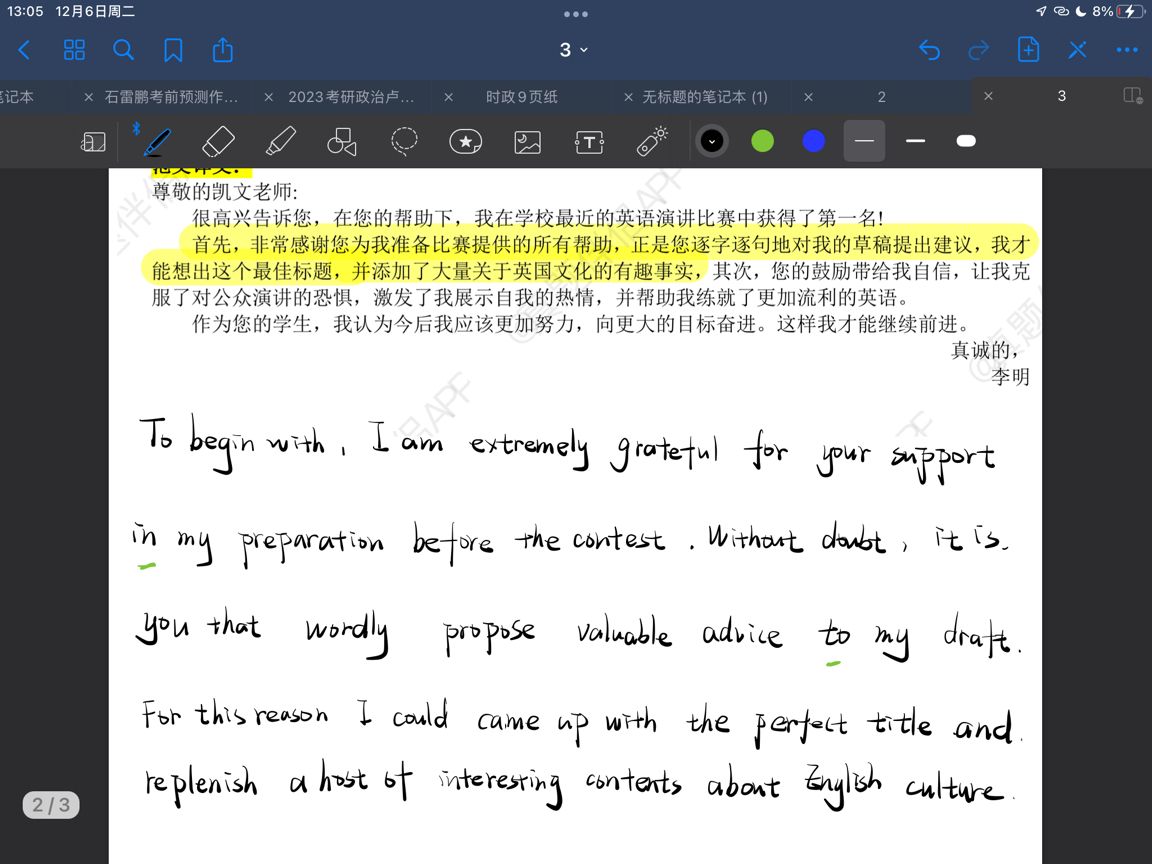 13:05 12月6日周二
8%
3
笔记本
石雷鹏考前预测作…
2023考研政治卢…
时政9页纸
无标题的笔记本 (1)
2
3
范文译文:
尊敬的凯文老师:
很高兴告诉您，在您的帮助下，我在学校最近的英语演讲比赛中获得了第一名!
首先，非常感谢您为我准备比赛提供的所有帮助，正是您逐字逐句地对我的草稿提出建议，我才
能想出这个最佳标题，并添加了大量关于英国文化的有趣事实，其次，您的鼓励带给我自信，让我克
服了对公众演讲的恐惧，激发了我展示自我的热情，并帮助我练就了更加流利的英语。
作为您的学生，我认为今后我应该更加努力，向更大的目标奋进。这样我才能继续前进。
真诚的，
李明
To begin with, I am extremely grateful for your support
in my preparation before the contest. Without doubt, it is
you that wordly propose valuable advice to my draft.
For this reason I could came up with the perfect title and
replenish a host of interesting contents about English culture.
2/3